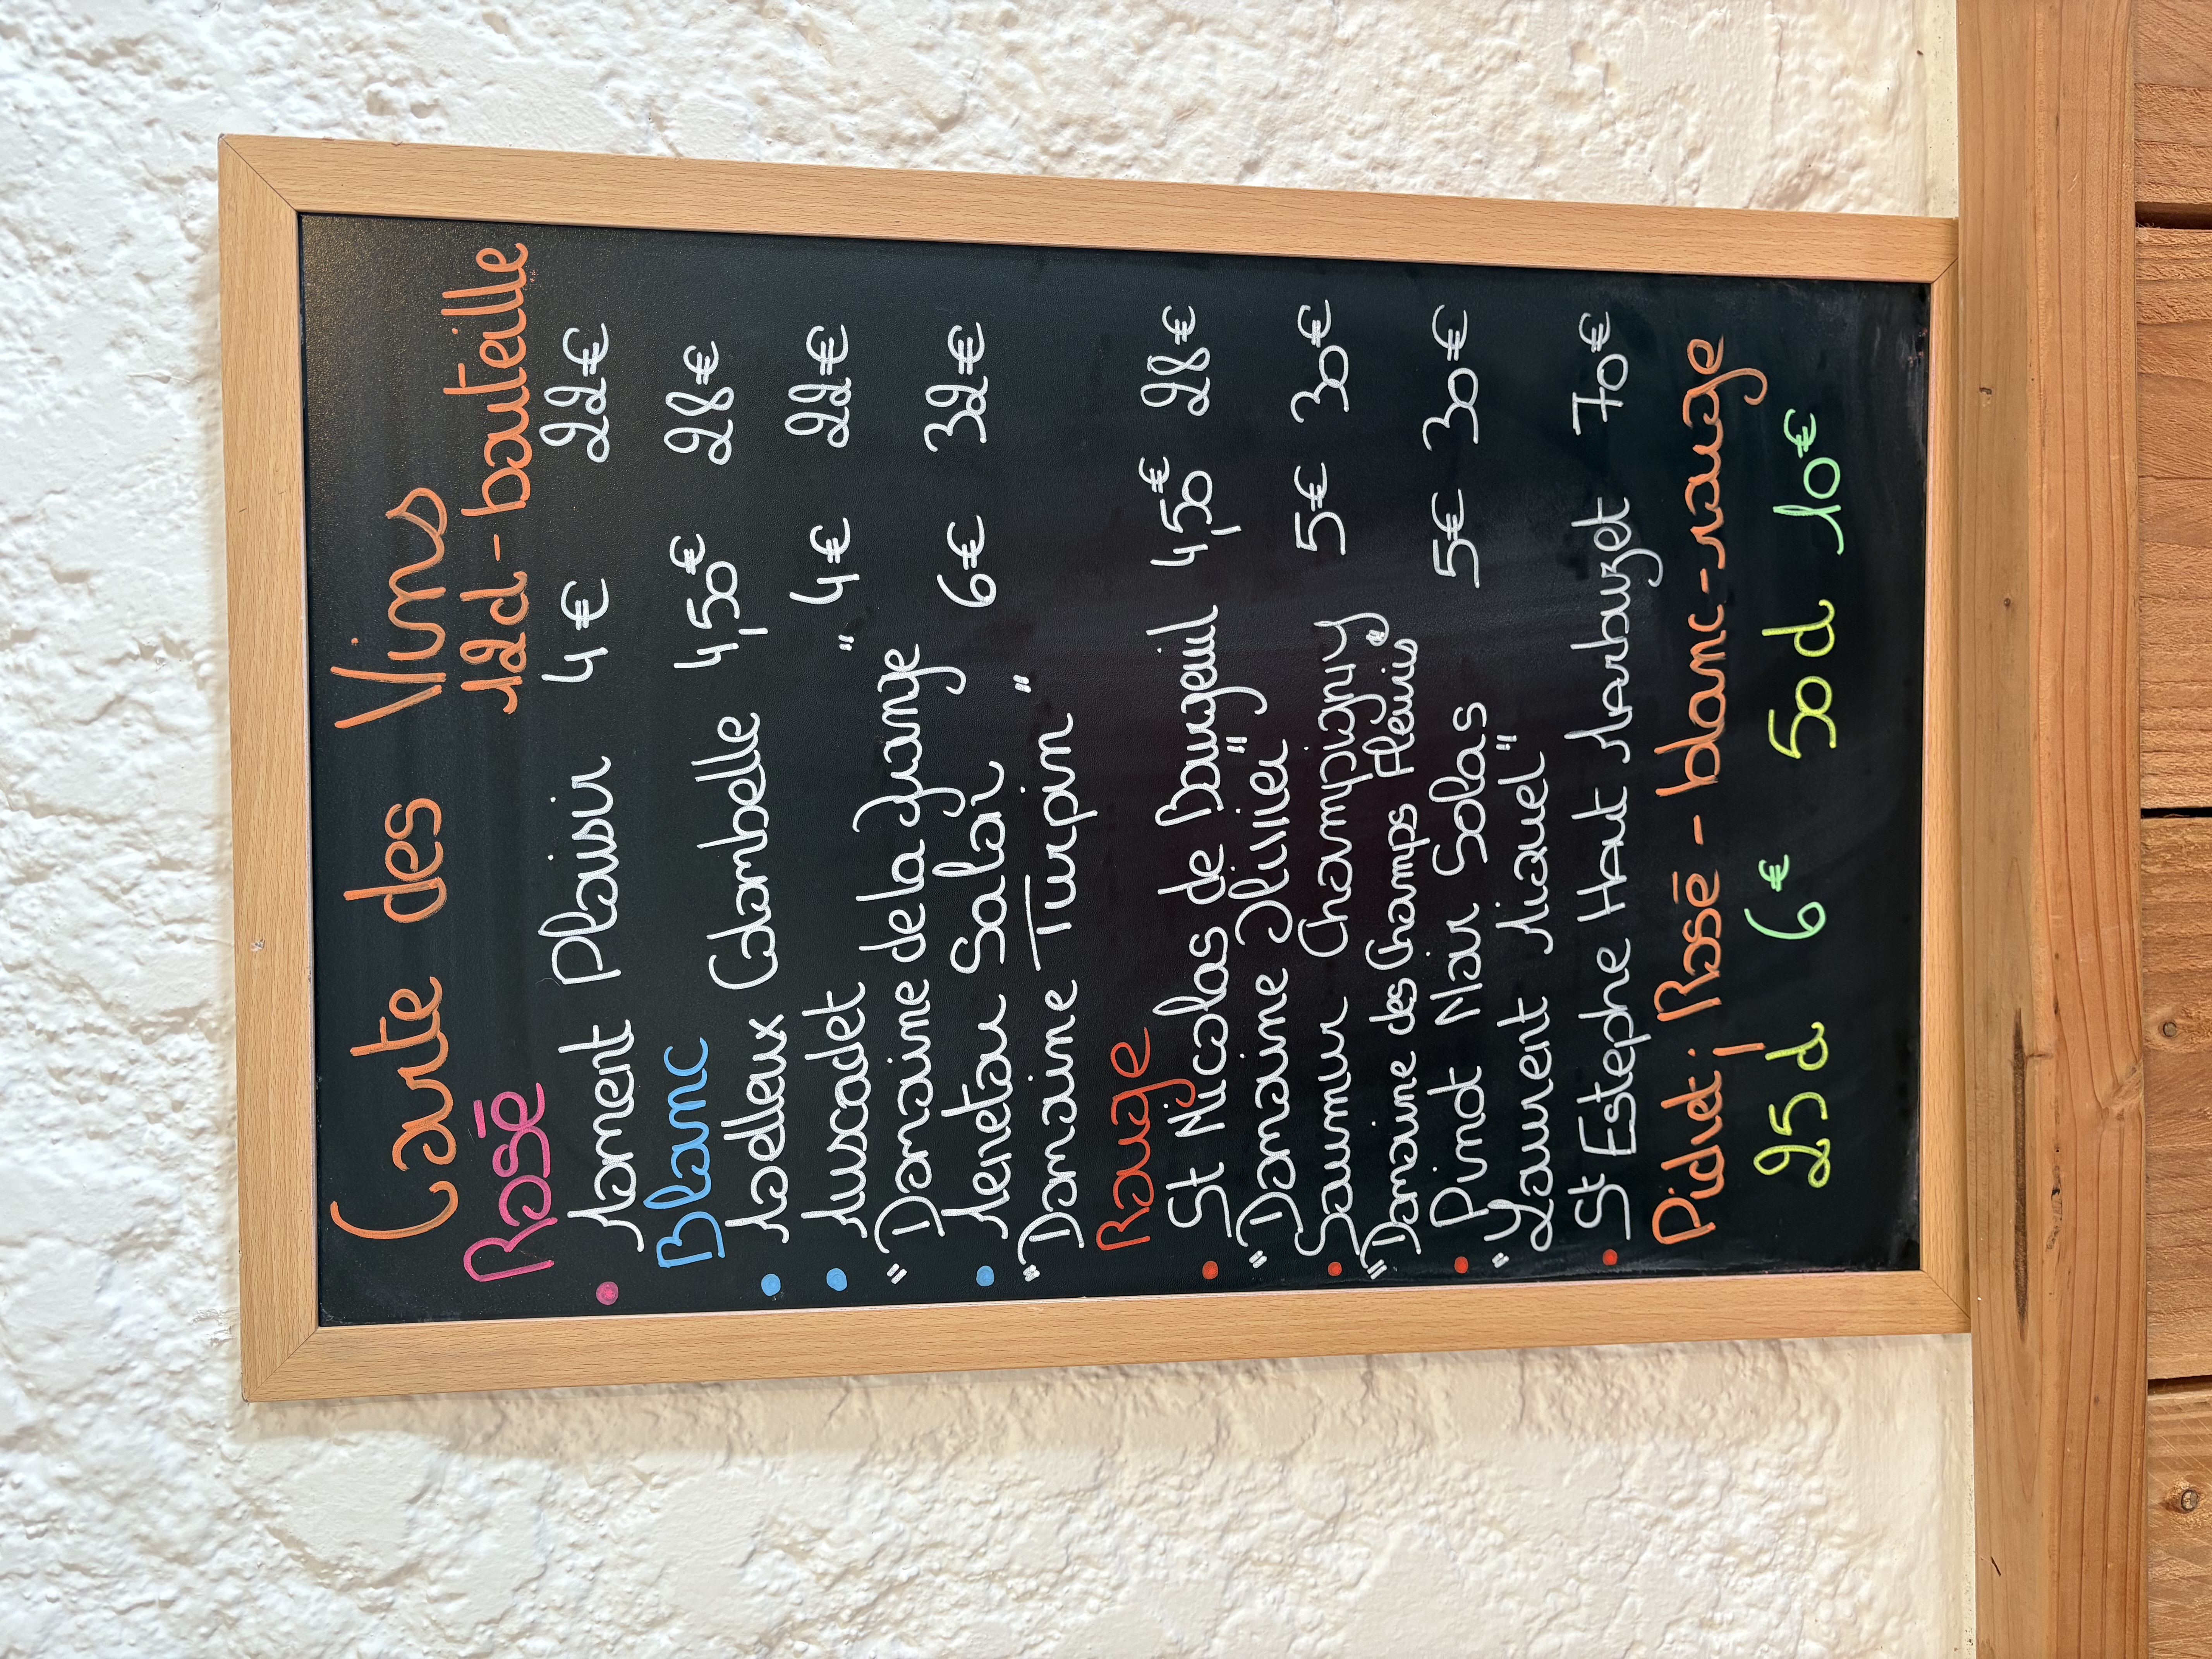 Carte des Vins
Rosé 12cl - bouteille
Moment Plaisir 4€ 22€
Blanc
Moelleux Colombelle 4,50€ 28€
Muscadet 4€ 22€
"Domaine de la Grange"
Menetou Salon 6€ 32€
"Domaine Turpin"
Rouge
St Nicolas de Bourgeuil 4,50€ 28€
"Domaine Olivier"
Saumur Champigny 5€ 30€
"Domaine des Champs Fleuris"
Pinot Noir Solas 5€ 30€
"Laurent Miquel"
St Estephe Haut Marbuzet 70€
Pichet; Rosé - blanc - rouge
25cl 6€ 50cl 10€